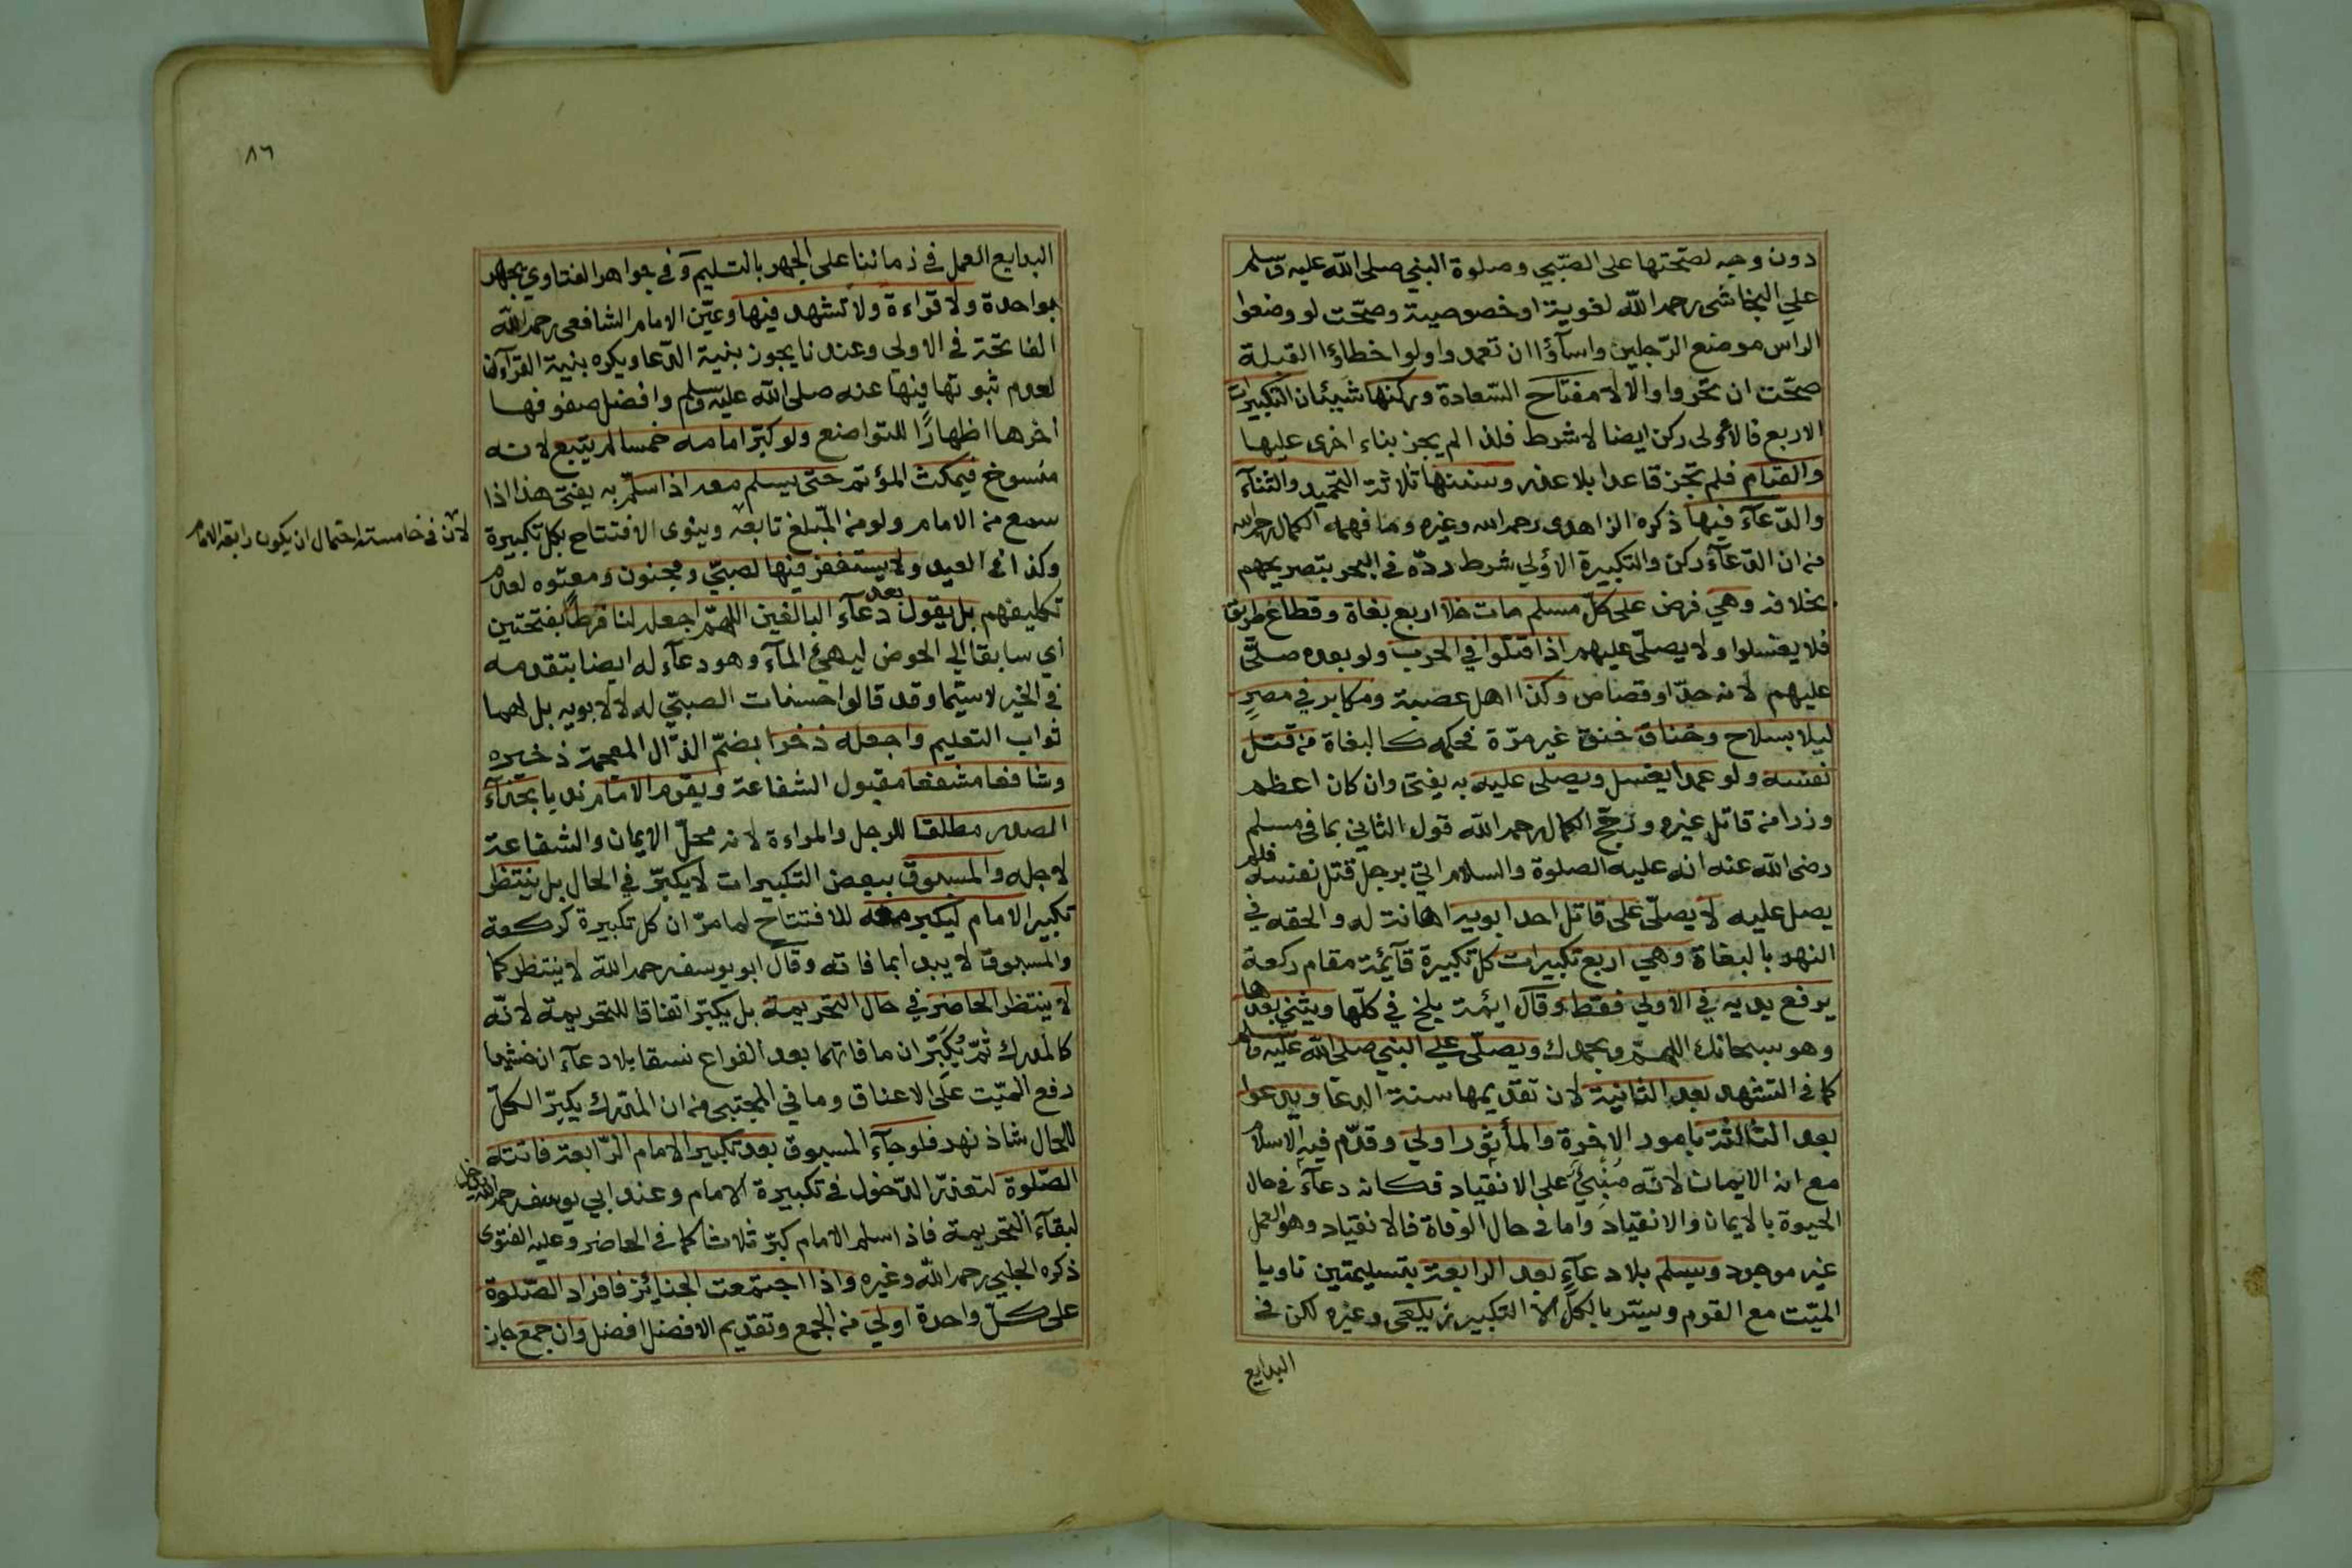 دون وجه لصحتها على الصبي وصلوة النبي صلى الله عليه وسلم
على النجاشي رحمه الله لغوية او خصوصية وصحت لو وضعوا
الراس موضع الرجلين واسآؤا ان تعمدوا ولو اخطاؤا القبلة
صحت ان تحروا والا لا مفتاح السعادة وركنها شيئان التكبيرات
الاربع فالأولى ركن ايضا لا شرط فلذا لم يجز بناء اخرى عليها
والقيام فلم تجز قاعدا بلا عذر وسننها ثلاثة التحميد والثنآء
والدعآء فيها ذكره الزاهدى رحمه الله وغيره وما فهمه الكمال رحمه الله
من ان الدعآء ركن والتكبيرة الاولي شرط رده في البحر بتصريحهم
بخلافه وهي فرض على كل مسلم مات خلا اربع بغاة وقطاع طريق
فلا يغسلوا ولا يصلى عليهم اذا قتلوا في الحرب ولو بعده صلى
عليهم لانه حد او قصاص وكذا اهل عصبة ومكابر في مصر
ليلا بسلاح وخناق خنق غير مرة فحكمه كالبغاة من قتل
نفسه ولو عمدا يغسل ويصلى عليه به يفتى وان كان اعظم
وزرا من قاتل غيره ورجح الكمال رحمه الله قول الثاني بما في مسلم
رضى الله عنه انه عليه الصلوة والسلام اتي برجل قتل نفسه فلم
يصل عليه لا يصلى على قاتل احد ابويه اهانة له والحقه في
النهر بالبغاة وهي اربع تكبيرات كل تكبيرة قآئمة مقام ركعة
يرفع يديه في الاولي فقط وقال ايئمة بلخ في كلها ويثني بعدها
وهو سبحانك اللهم وبحمدك ويصلى علي النبي صلى الله عليه وسلم
كما في التشهد بعد الثانية لان تقديمها سنة الدعا ويدعوا
بعد الثالثة بامور الاخرة والمأثور اولي وقدم فيه الاسلام
مع انه الايمان لانه منبئ على الانقياد فكانه دعآء في حال
الحيوة بالايمان والانقياد واما في حال الوفاة فالانقياد وهو العمل
غير موجود ويسلم بلا دعآء بعد الرابعة بتسليمتين ناويا
الميت مع القوم ويسر بالكل الا التكبير زيلعى وغيره لكن في
البدايع
٨٦
البدايع العمل في زماننا على الجهر بالتسليم وفي جواهر الفتاوي يجهر
بواحدة ولا قراءة ولا تشهد فيها وعين الامام الشافعى رحمه الله
الفاتحة في الاولى وعندنا يجوز بنية الدعا ويكره بنية القرآءة
لعدم ثبوتها فيها عنه صلى الله عليه وسلم وافضل صفوفها
أخرها اظهارًا للتواضع ولو كبر امامه خمسا لم يتبع لانه
منسوخ فيمكث المؤتم حتى يسلم معه اذا سلم به يفتى هذا اذا
سمع من الامام ولو من المبلغ تابعه وينوى الافتتاح بكل تكبيرة
لان في خامسته احتمال ان يكون رابعة الامام
وكذا في العيد ولا يستغفر فيها لصبي ومجنون ومعتوه لعدم
تكليفهم بل يقول بعد دعآء البالغين اللهم اجعله لنا فرطًا بفتحتين
أي سابقا الي الحوض ليهيئ المآء وهو دعآء له ايضا بتقدمه
في الخير لا سيما وقد قالوا حسنات الصبي له لا لابويه بل لهما
ثواب التعليم واجعله ذخرا بضم الذال المعجمة ذخيره
وشافعا مشفعا مقبول الشفاعة ويقوم الامام ندبا بحذآء
الصدر مطلقا للرجل والمراءة لانه محل الايمان والشفاعة
لاجله والمسبوق ببعض التكبيرات لا يكبر في الحال بل ينتظر
تكبير الامام ليكبر معه للافتتاح لما مر ان كل تكبيرة كركعة
والمسبوق لا يبدا بما فاته وقال ابو يوسف رحمه الله لا ينتظر كما
لا ينتظر الحاضر في حال التحريمة بل يكبر اتفاقا للتحريمة لانه
كالمدرك ثم يكبران ما فاتهما بعد الفراغ نسقا بلا دعآء ان خشيا
رفع الميت على الاعناق وما في المجتبى من ان المدرك يكبر الكل
للحال شاذ نهر فلو جآء المسبوق بعد تكبير الامام الرابعة فاتته
الصلوة لتعذر الدخول في تكبيرة الامام وعند ابي يوسف رحمه الله يدخل
لبقآء التحريمة فاذا سلم الامام كبر ثلاثا كما في الحاضر وعليه الفتوى
ذكره الحلبي رحمه الله وغيره واذا اجتمعت الجنايئز فافراد الصلوة
على كل واحدة اولي من الجمع وتقديم الافضل افضل وان جمع جاز